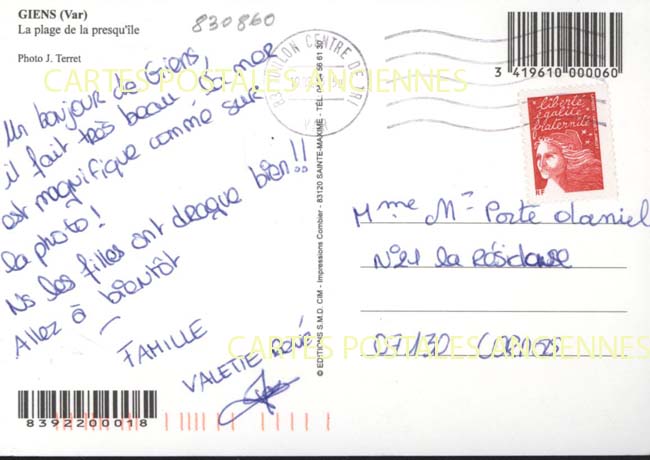 GIENS (Var)
La plage de la presqu'île
Photo J. Terret
830860
Un bonjour de Giens,
il fait très beau, la mer
est magnifique comme sur
la photo!
Ns les filles ont drague bien!!
Allez à bientôt
FAMILLE
VALETTE
8392200018
© EDITIONS S.M.D. CIM - Impressions Combier - 83120 SAINTE-MAXIME - TÉL. 04 94 56 61 30
TOULON CENTRE DE TRI
3 419610 000060
liberté
égalité
fraternité
RF
Mme Mr Porte daniel
N°21 la Résidence
07130
CARTES POSTALES ANCIENNES
CARTES POSTALES ANCIENNES